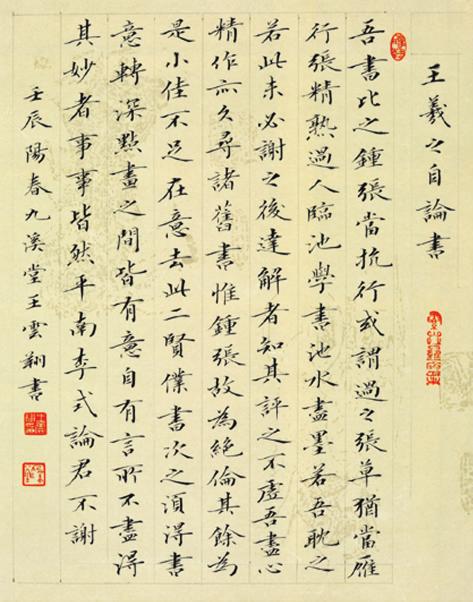 王羲之自論書
吾書比之鍾張當抗行或謂過之張草猶當雁
行張精熟過人臨池學書池水盡墨若吾耽之
若此未必謝之後達解者知其評之不虛吾盡心
精作亦久尋諸舊書惟鍾張故為絕倫其餘為
是小佳不足在意去此二賢僕書次之須得書
意轉深點畫之間皆有意自有言所不盡得
其妙者事事皆然平南李式論君不謝
壬辰陽春九溪堂王雲翔書